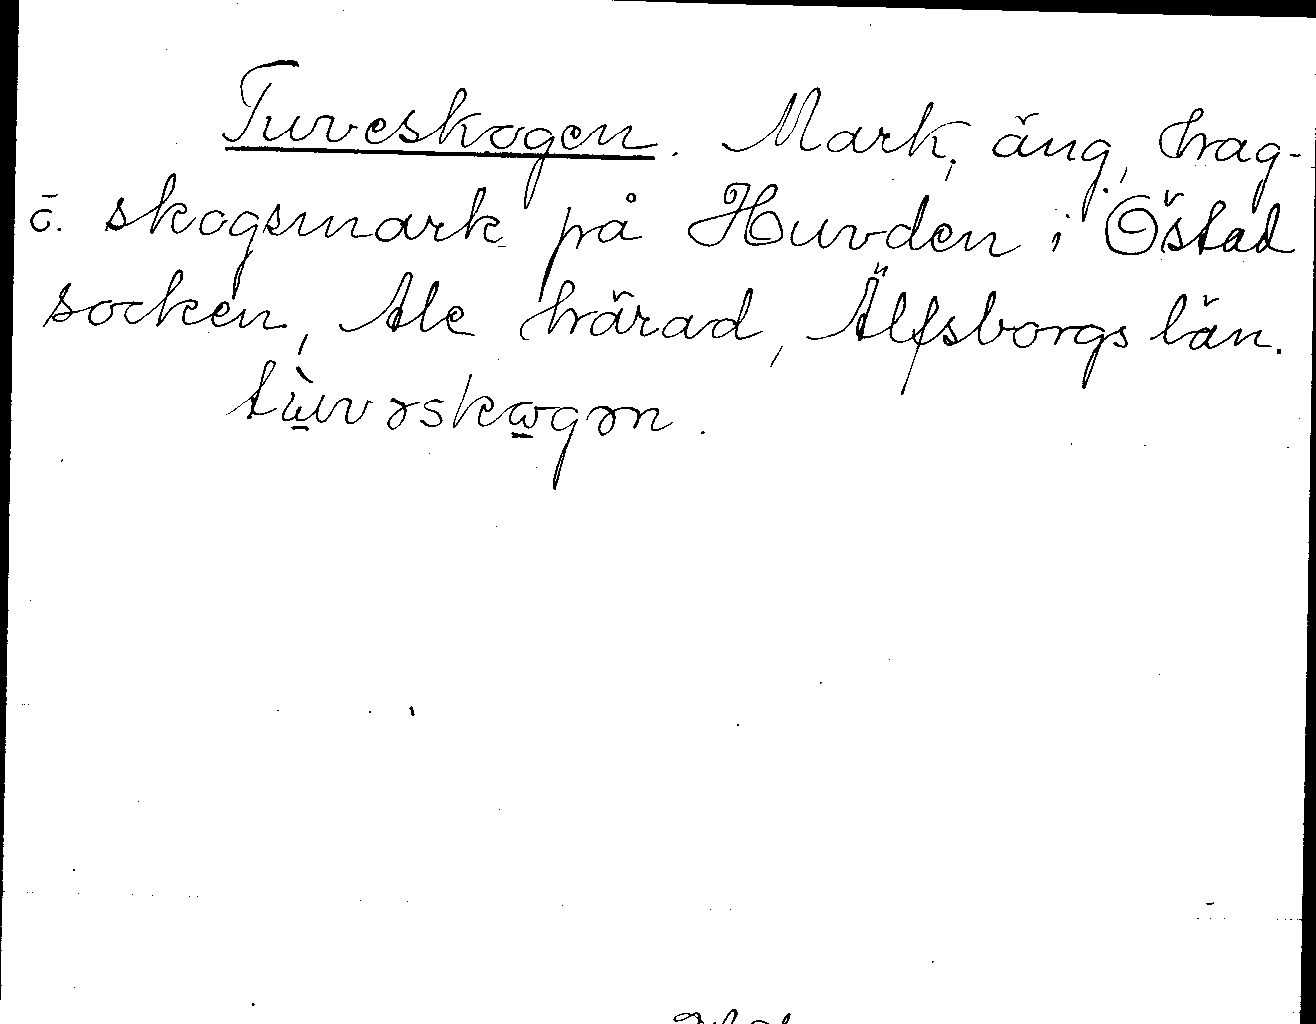 Tuveskogen. Mark, äng, hag-
o. skogsmark på Huvden i Östad
socken, Ale härad, Älfsborgs län.
tù̱vəskω̱gən.